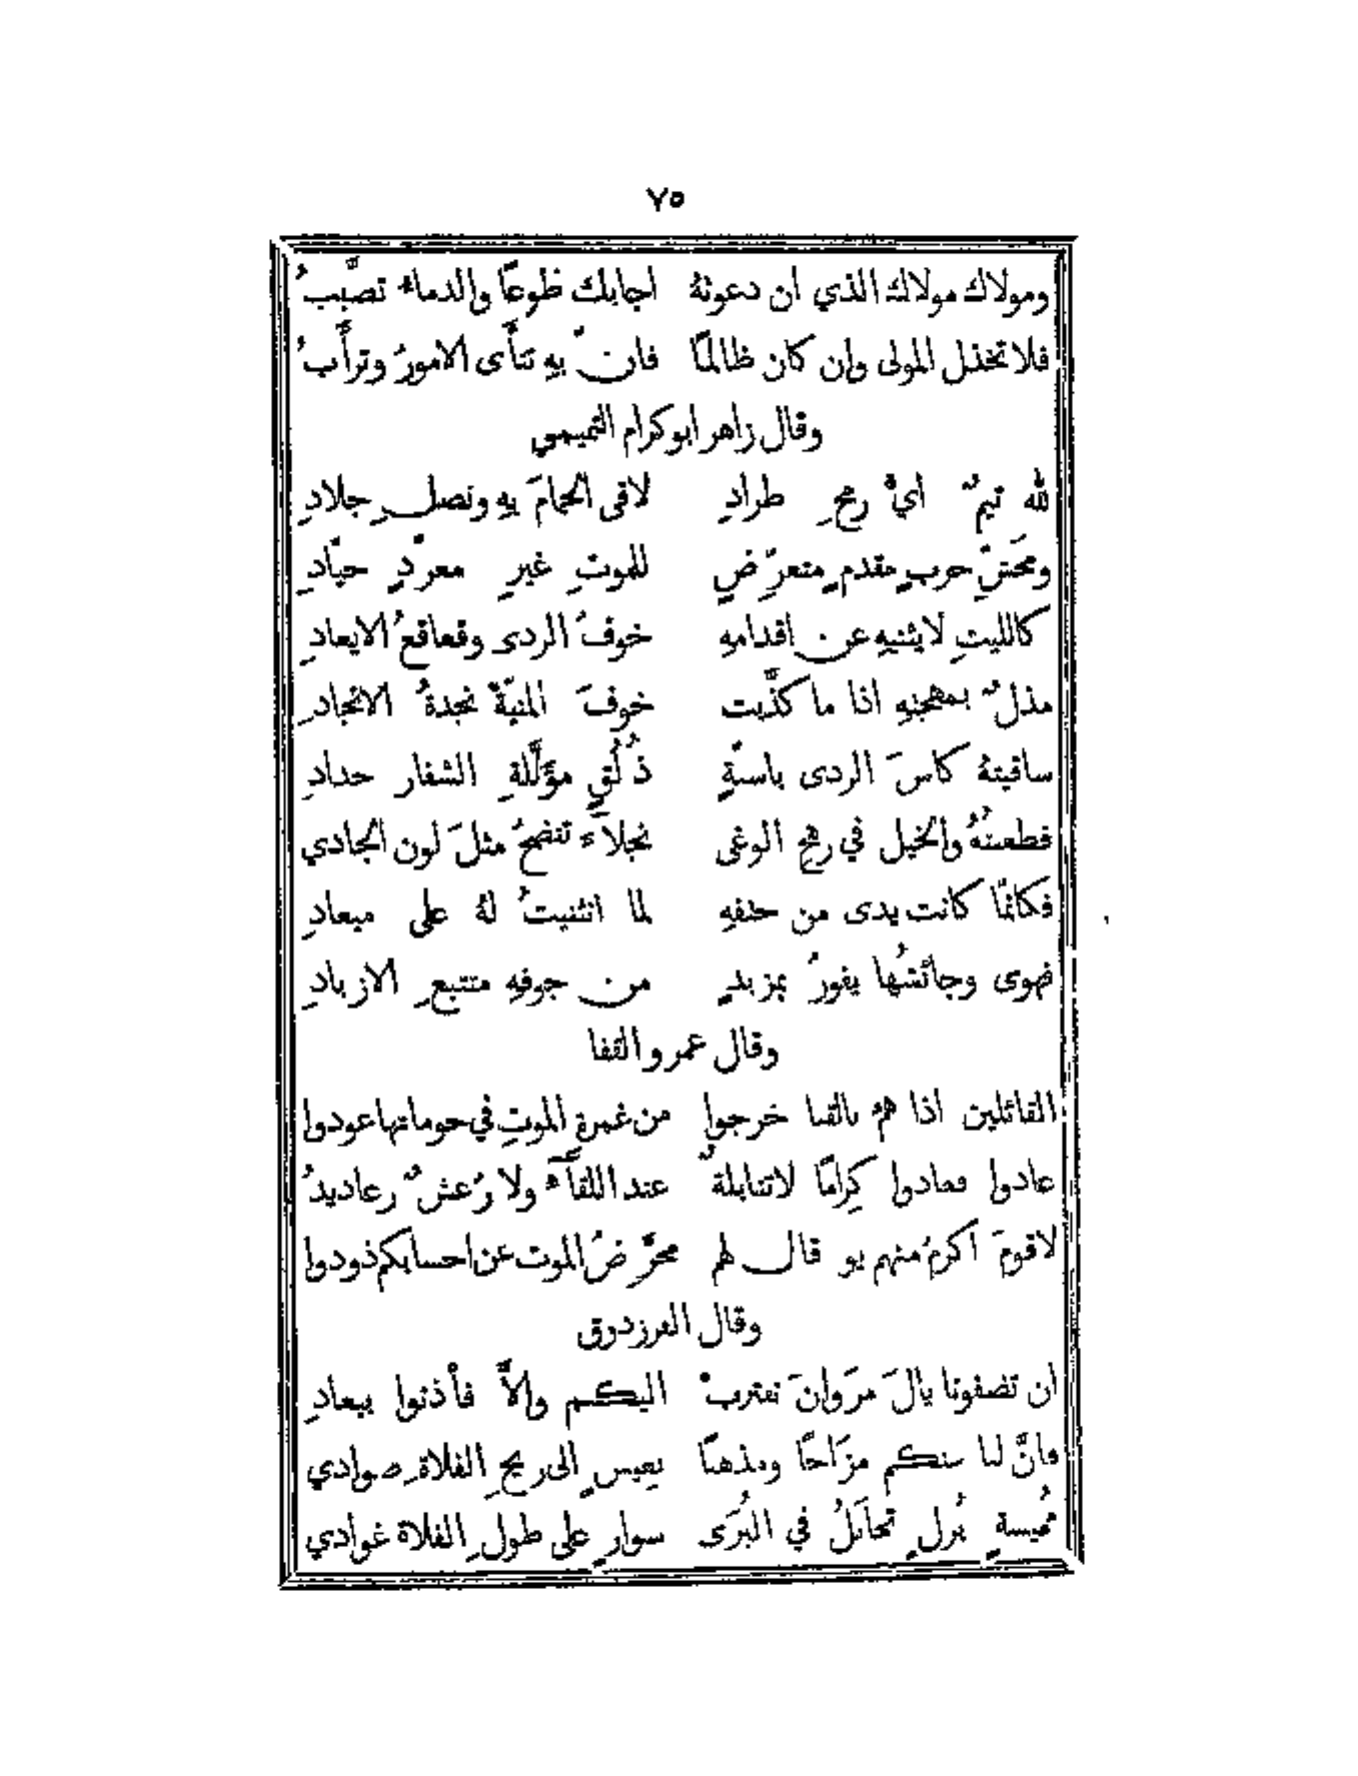 ٧٥
ومولاك مولاك الذي ان دعوتهُ اجابك طوعًا والدماءُ تصَّببُ
فلا تخذل المولى وإن كان ظالمًا فانّ بهِ تثأَى الامورُ وترأَبُ
وقال زاهر ابو كرام التميمي
لله تيمٌ ايُّ رمحِ طرادِ لاقى الحمامَ بهِ ونصلِ جلادِ
ومَحَشّ حربٍ مقدمٍ متعرّضٍ للموتِ غيرِ معرّدٍ حيّادِ
كالليثِ لا يثنيهِ عن اقدامهِ خوفُ الردى وقعاقعُ الايعادِ
مذلٌ بمهجتهِ اذا ما كذَّبت خوفَ المنيّة نجدةُ الانجادِ
ساقيتهُ كاسَ الردى باسنّةٍ ذُلُقٍ مؤَلَّلةِ الشفار حدادِ
فطعنتُهُ والخيل في رهج الوغى نجلاَءَ تنضحُ مثلَ لون الجادي
فكانّما كانت يدى من حتفهِ لما انثنيتُ لهُ على ميعادِ
فهوى وجائشُها يفورُ بمزبدٍ من جوفهِ متتبعِ الازبادِ
وقال عمرو القفا
القائلين اذا هم بالقنا خرجوا من غمرة الموتِ في حوماتها عودوا
عادوا فعادوا كِرامًا لا تنابلةٌ عند اللقآءِ ولا رُعشٌ رعاديدُ
لا قومَ اكرمُ منهم يو قال لهم محرّضُ الموت عن احسابكم ذودوا
وقال الفرزدق
ان تنصفونا يالَ مرَوانَ نقتربْ اليكم والاَّ فأْذنوا ببعادِ
فانَّ لنا منكم مزَاحًا ومذهبًا بعيسٍ الى ريحِ الفلاةِ صوادي
مُخيسةٍ بُزلٍ تخاَيَلُ في البُرَى سوارٍ على طولِ الفلاة غوادي